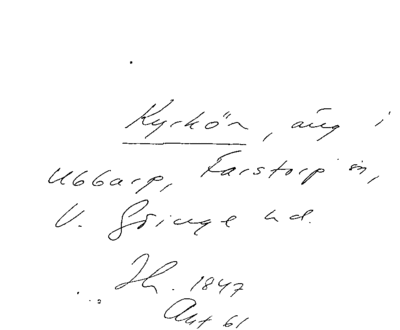 Kyrkön, äng i
Ubbarp, Farstorp sn,
V. Göinge hd.
Jh. 1847
Akt 61